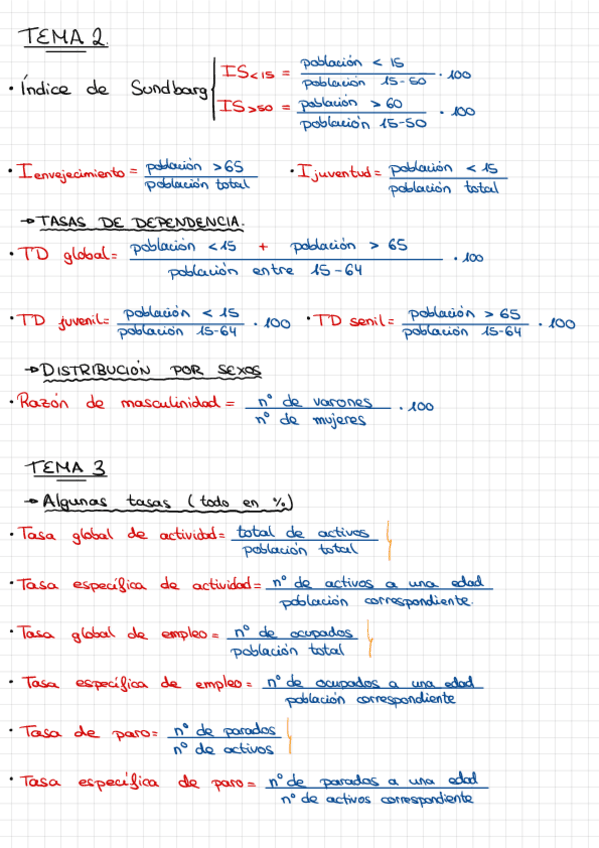 TEMA 2.
· Índice de Sundbarg
IS<15 = población < 15 / población 15-50 · 100
IS>50 = población > 60 / población 15-50 · 100
· I envejecimiento = población >65 / población total · I juventud = población < 15 / población total
→ TASAS DE DEPENDENCIA.
· TD global = población <15 + población > 65 / población entre 15-64 · 100
· TD juvenil = población < 15 / población 15-64 · 100 · TD senil = población > 65 / población 15-64 · 100
→ DISTRIBUCIÓN POR SEXOS
· Razón de masculinidad = nº de varones / nº de mujeres · 100
TEMA 3
→ Algunas tasas (todo en %)
· Tasa global de actividad = total de activos / población total
· Tasa específica de actividad = nº de activos a una edad / población correspondiente.
· Tasa global de empleo = nº de ocupados / población total
· Tasa específica de empleo = nº de ocupados a una edad / población correspondiente
· Tasa de paro = nº de parados / nº de activos
· Tasa específica de paro = nº de parados a una edad / nº de activos correspondiente